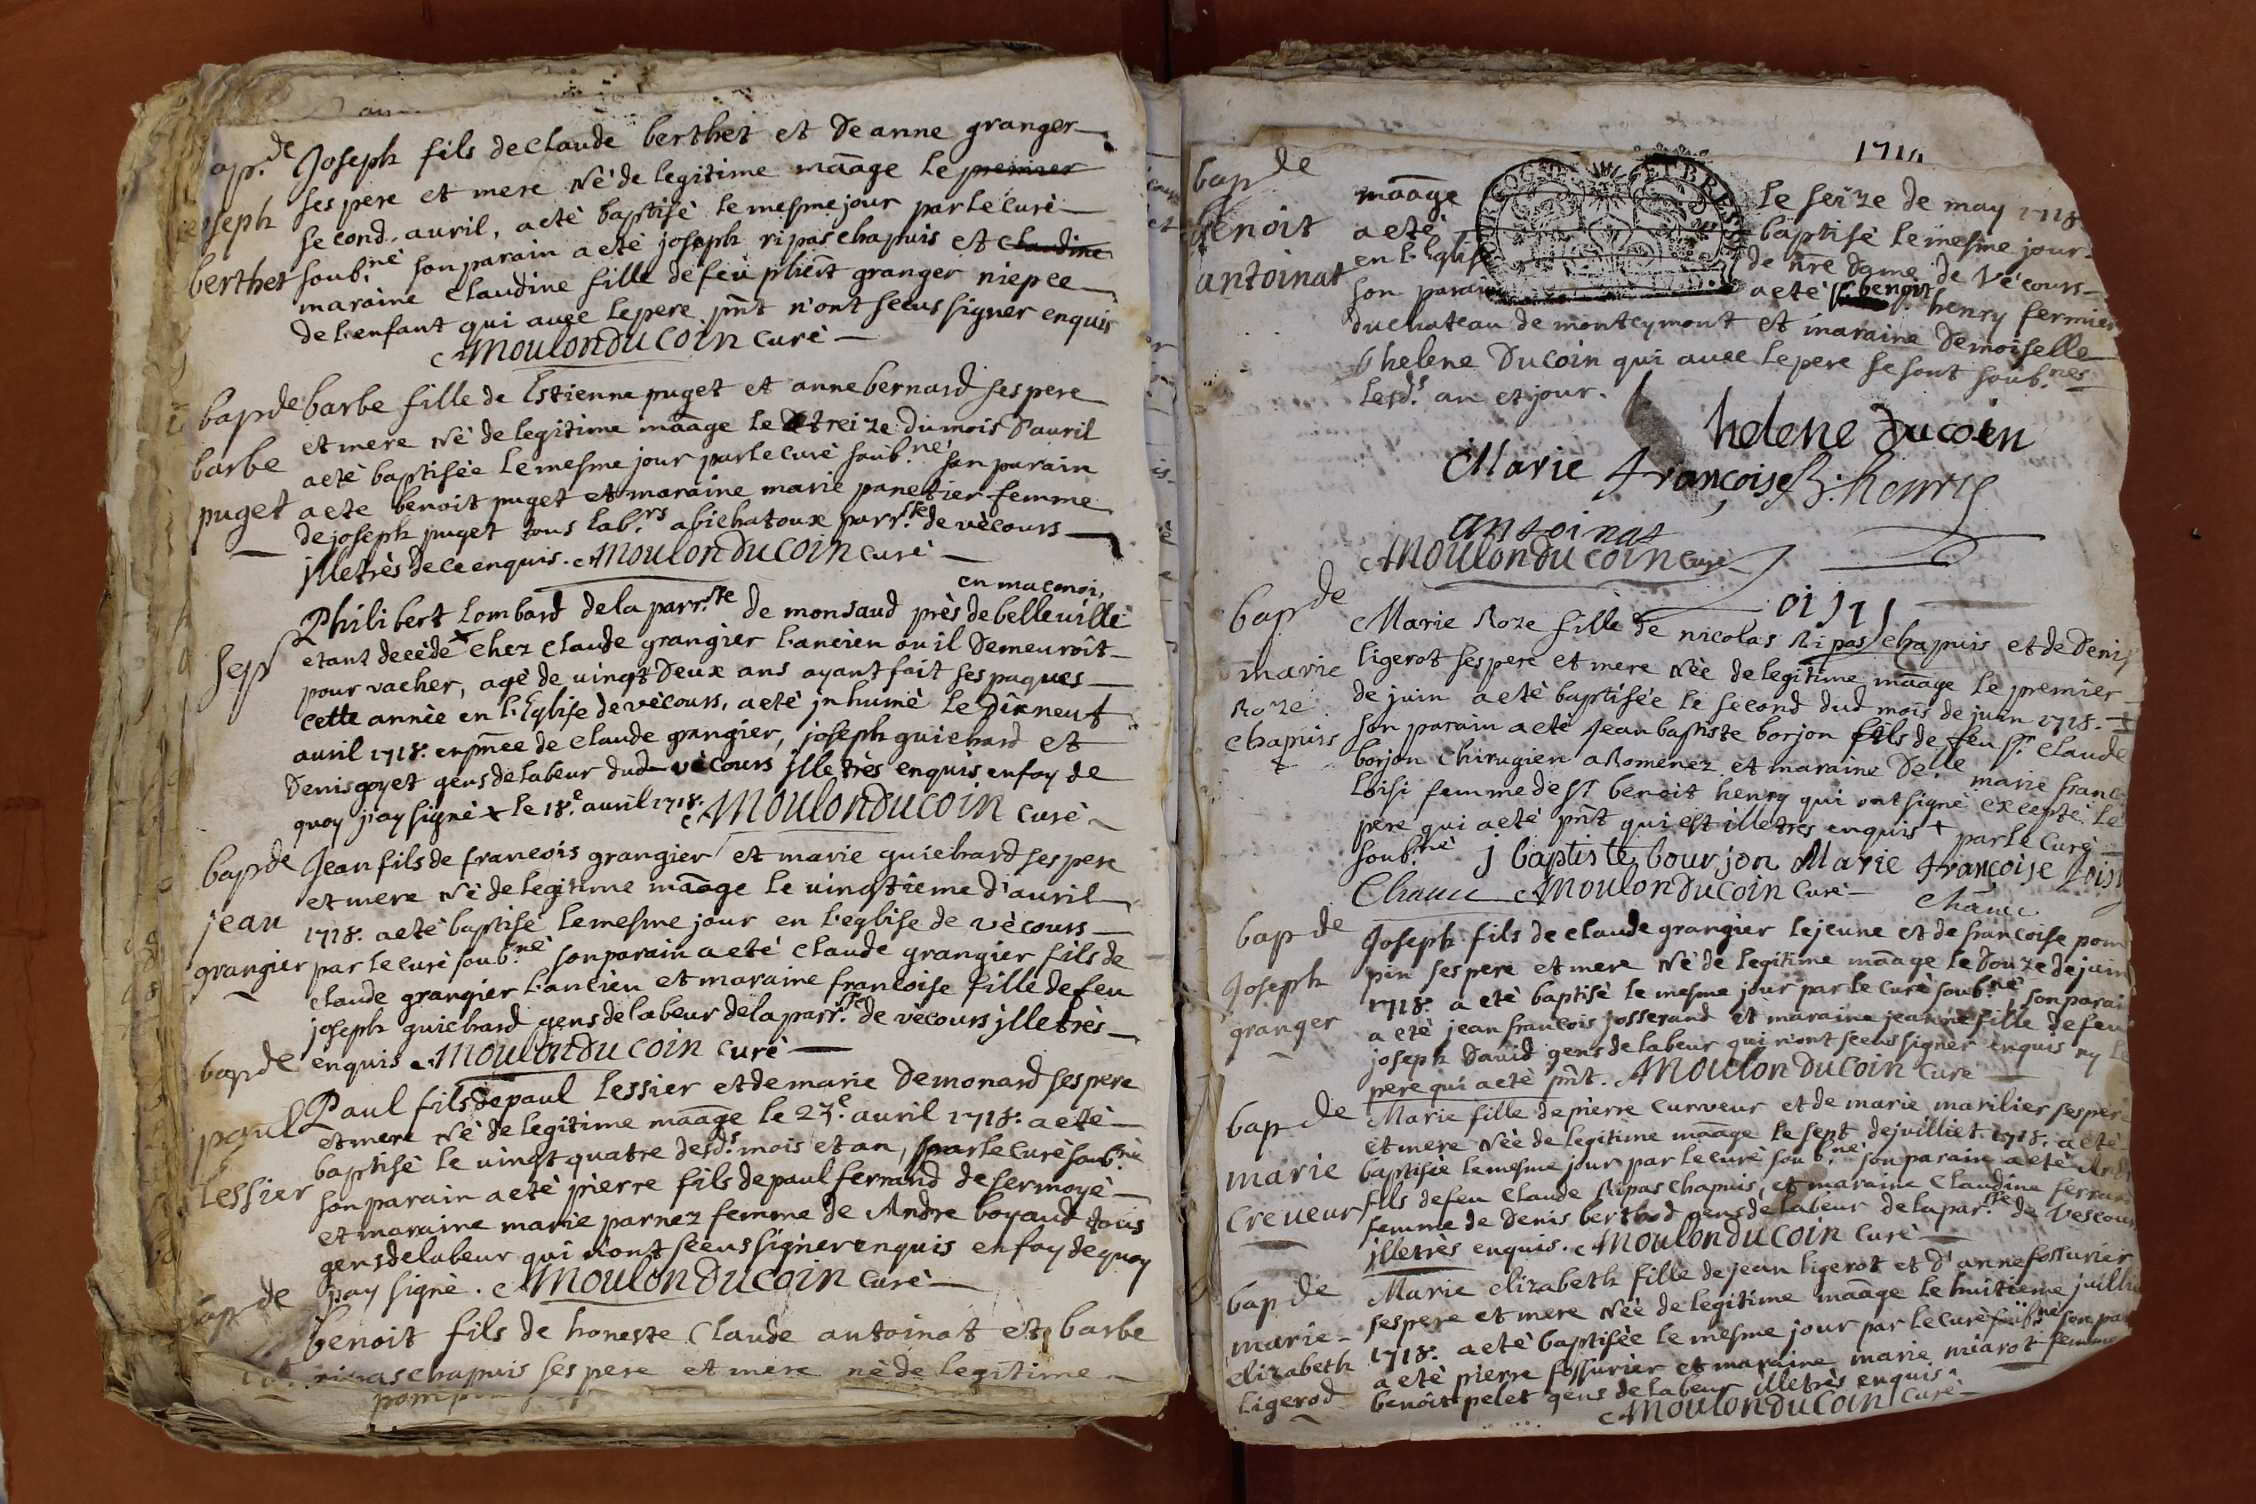 bap.de Joseph fils de Claude berthet et de anne granger
ses pere et mere Né de legitime mãage le premier
joseph second avril, a eté baptisé le mesme jour par le curé
berthet soub.né son parain a eté joseph ripas chapuis et claudine
maraine Claudine fille de feu phbert granger niepce
de l'enfant qui avec le pere pñt n'ont sceus signer enquis
Moulonducoin curé
bap de barbe fille de Estienne puget et anne bernard ses pere
et mere Né de legitime mãage le treize du mois d'avril
barbe a eté baptisée le mesme jour par le curé soub.né son parain
puget a eté benoit puget et maraine marie panetier femme
de joseph puget tous lab.rs a bichatoux parr.sse de vècours
jlletrès de ce enquis. Moulonducoin curé
en maconoi,
Philibert Lombard de la parr.sse de monsaud près de belleville
sep etant decédé chez Claude grangier l'ancien ou il demeuroît
pour vacher, agé de vingt deux ans ayant fait ses paques
cette année en l'Eglise de vècours, a eté jnhumé le dixneuf
avril 1718. en pñce de Claude grangier, joseph guichard et
Denis goyet gens de labeur dud vècours jlletrès enquis en foy de
quoy j'ay signé + le 18.e avril 1718. Moulonducoin curé
bap de Jean fils de francois grangier et marie guichard ses pere
et mere Né de legitime mãage le vingtieme d'avril
jean 1718. a eté baptisé le mesme jour en l'eglise de vècours
grangier par le curé soub.né son parain a eté Claude grangier fils de
Claude grangier l'ancien et maraine francoise fille de feu
joseph guichard gens de labeur de la parr.sse de vècours jlletrès
enquis Moulonducoin curé
bap de Paul fils de paul Lessier et de marie Demonard ses pere
et mere Né de legitime mãage le 23.e avril 1718. a eté
paul baptisé le vingt quatre desd.s mois et an, par le curé soub.né
Lessier son parain a eté pierre fils de paul ferrand de sermoyé
et maraine marie parnez femme de Andre boyaud tous
gens de labeur qui n'ont sceus signer enquis en foy de quoy
j'ay signé. Moulonducoin curé
bap de benoit fils de honeste Claude antoinat et barbe
ripas chapuis ses pere et mere né de legitime
bap de
benoit
antoinat
mãage le seize de may 1718
a eté baptisé le mesme jour
en l'Eglise de ñre dame de Vécours
son parain a eté Sr. benoit henry fermier
du chateau de monteymont et maraine Demoiselle
helene Ducoin qui avec le pere se sont soub.nés
lesd.s an et jour.
helene ducoin
Marie françoise B: henry
antoinat
Moulonducoin curé
bap de Marie Roze fille de nicolas Ripas chapuis et de Denis
marie ligerot ses pere et mere Née de legitime mãage le premier
Roze de juin a eté baptisée le second dud mois de juin 1718.
chapuis son parain a eté Jean baptiste borjon fils de feu Sr. Claude
borjon Chirugien a Romenez et maraine De.lle marie franc
Loisi femme de Sr benoit henry qui ont signé excepté le
pere qui a eté pñt qui est illetres enquis + par le curé
soub.né j baptiste bourjon Marie françoise Loisi
Moulonducoin curé
bap de Joseph fils de Claude grangier le jeune et de francoise pom
Joseph pin ses pere et mere Né de legitime mãage le Douze de juin
granger 1718. a eté baptisé le mesme jour par le curé soub.né, son parai
a eté jean francois josserand et maraine jeanne fille de feu
joseph David gens de labeur qui n'ont sceus signer enquis ny le
pere qui a eté pñt. Moulonducoin curé
bap de Marie fille de pierre Curveur et de marie marilier ses pere
et mere Née de legitime mãage le sept de juilliet. 1718. a eté
marie baptisée le mesme jour par le curé soub.né son parain a eté
creveur fils de feu Claude Ripas chapuis, et maraine Claudine ferrand
femme de Denis berthod gens de labeur de la par.sse de Vescour
jlletrès enquis. Moulonducoin curé
bap de Marie elizabeth fille de jean ligerot et d'anne fossurier
marie ses pere et mere Née de legitime mãage le huitieme juillie
elizabeth 1718. a eté baptisée le mesme jour par le curé soub.né son par
ligerod a eté pierre fossurier et maraine marie miarot femme
benôit pelet gens de labeur illetrès enquis
Moulonducoin curé